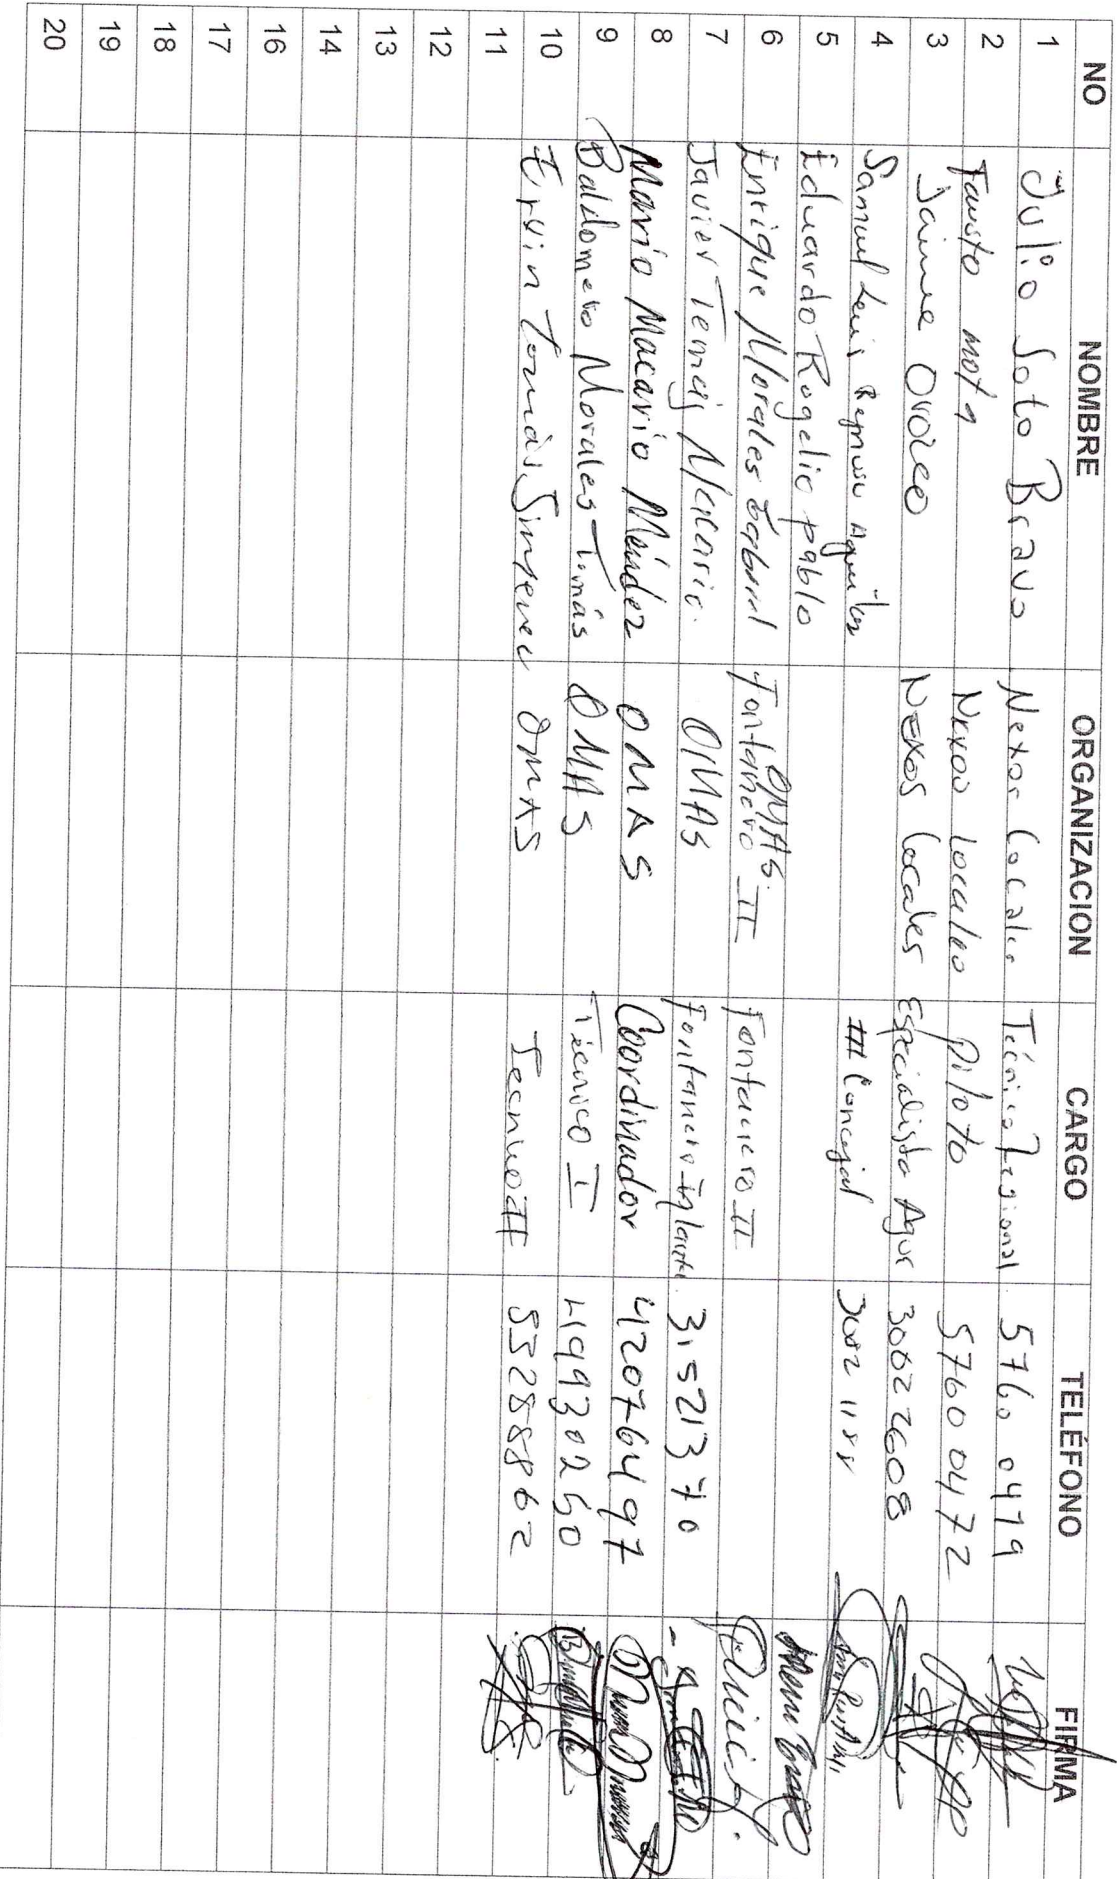 NO NOMBRE ORGANIZACION CARGO TELÉFONO FIRMA
1 Julio Soto Bravo Nexos Locales Técnico Regional 5760 0479
2 Fausto mota Nexos Locales Piloto 5760 0472
3 Jaime Orozco Nexos Locales Especialista Agua 30622608
4 Samuel Luis Reynoso Aguilar III Concejal
5 Eduardo Rogelio pablo
6 Enrique Morales OMAS. Fontanero II Fontanero II
7 Javier Temaj Macario. OMAS Fontanero 31521370
8 Mario Macario Méndez OMAS Coordinador 42076497
9 Baldomero Morales Tomás OMAS Técnico I 49930250
10 Ervin Tomás OMAS Tecnico II 53288862
11
12
13
14
16
17
18
19
20